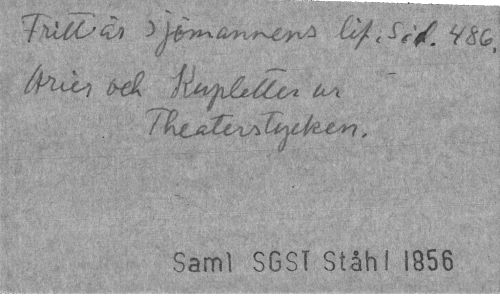 Fritt är Sjömannens lif. Sid. 486.
Arier och Kupletter ur
Theaterstycken.
Saml SGST Ståhl 1856